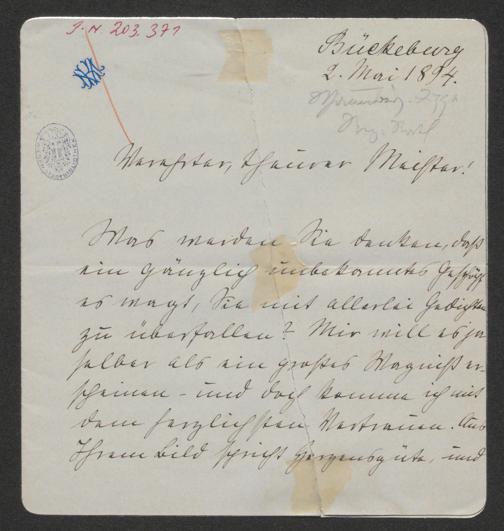 I. N. 203.371
Bückeburg
2. Mai 1894.
Verehrter, theurer Meister!
Was werden Sie denken, daß
ein gänzlich unbekanntes Geschöpf
es wagt, Sie mit allerlei Gedichten
zu überfallen? Mir will es ja
selber als ein großes Wagniß er-
scheinen - und doch komme ich mit
dem herzlichsten Vertrauen. Aus
Ihrem Bild spricht Herzensgüte, und